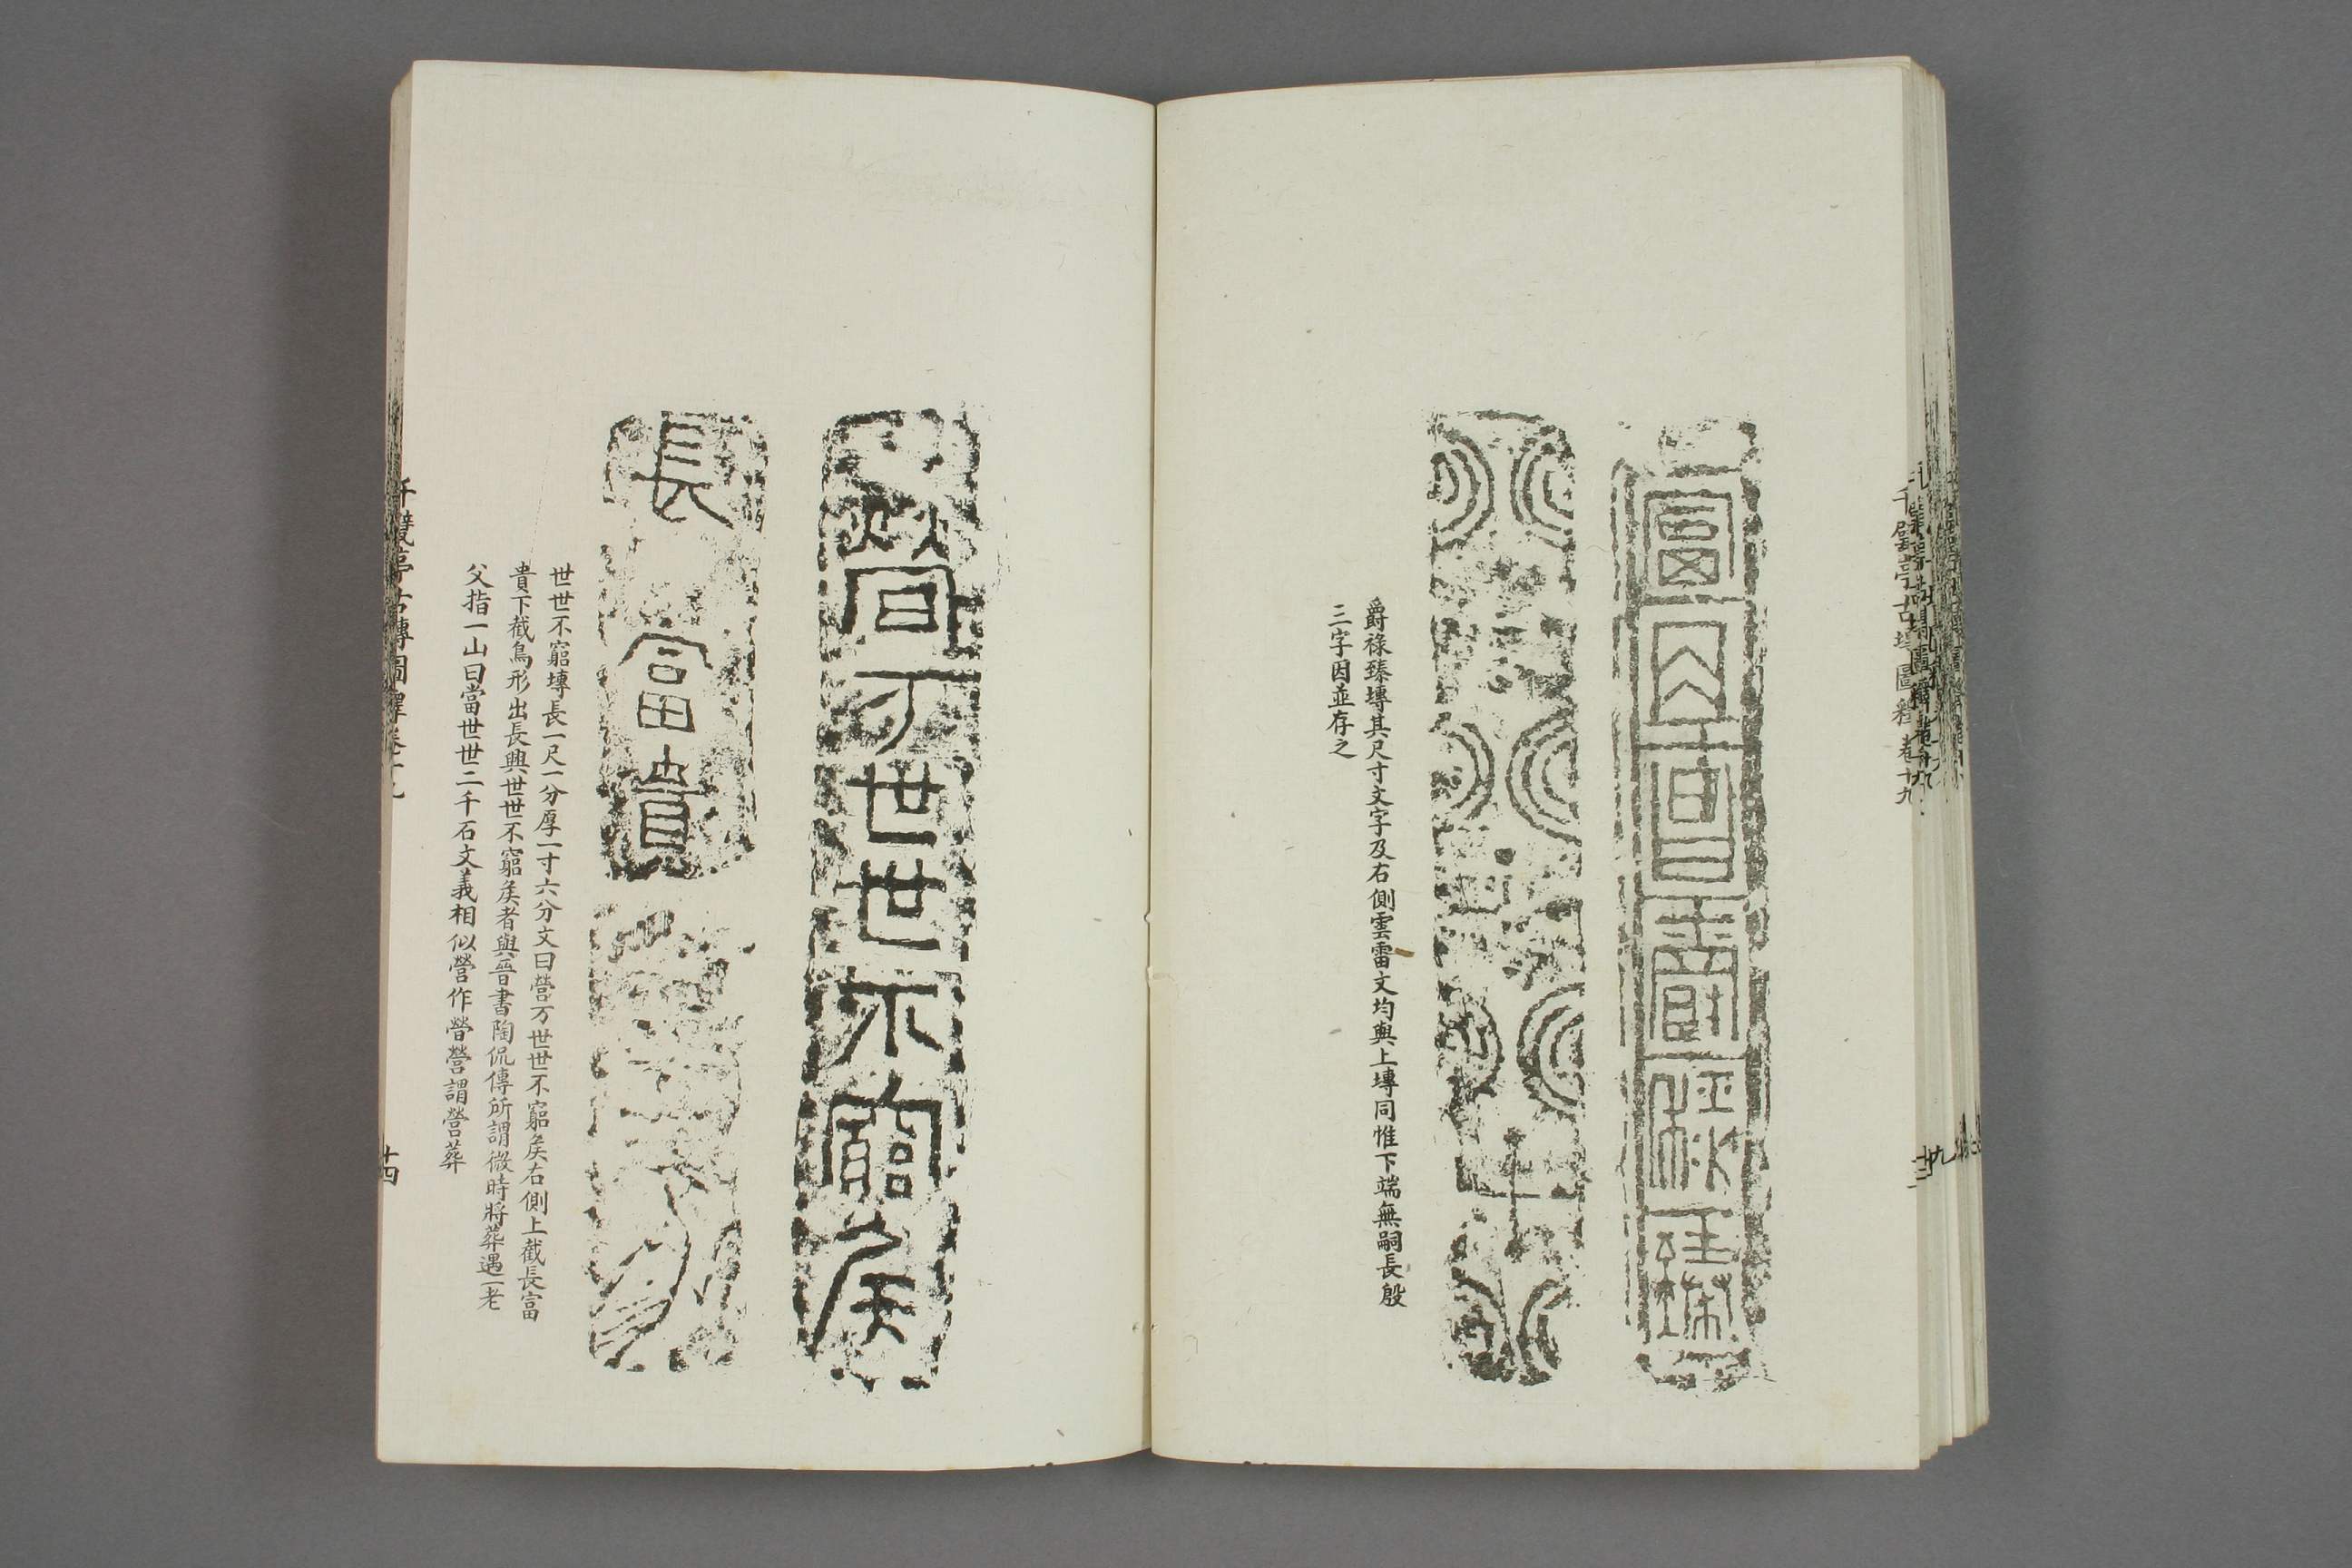 千甓亭古塼圖釋卷十九
富
貴
爵祿臻塼其尺寸文字及右側雲雷文均與上塼同惟下端無嗣長殷
三字因並存之
万世世不窮矦
長富貴
世世不窮塼長一尺一分厚一寸六分文曰營万世世不窮矦右側上截長富
貴下截鳥形出長興世世不窮矦者與晉書陶侃傳所謂微時將葬遇一老
父指一山曰當世世二千石文義相似營作營謂營葬
千甓亭古塼圖釋卷十九
廿四